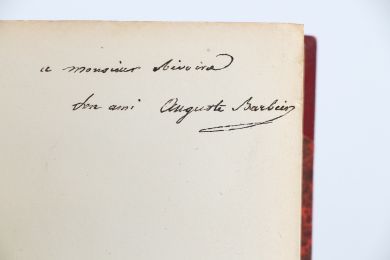 a monsieur Rivoire
Son ami Auguste Barbier